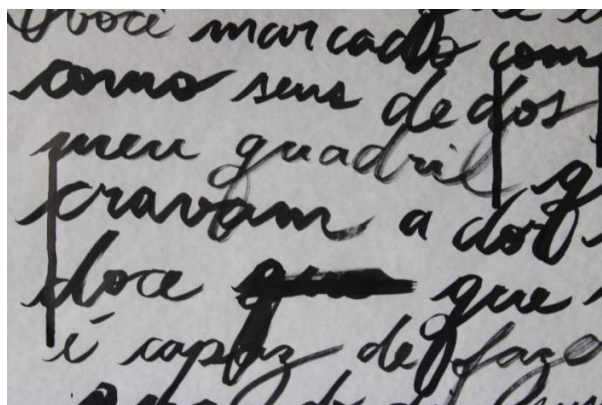 você marcado com
como seus dedos
meu quadril q
cravam a dor
doce que que
é capaz de faze